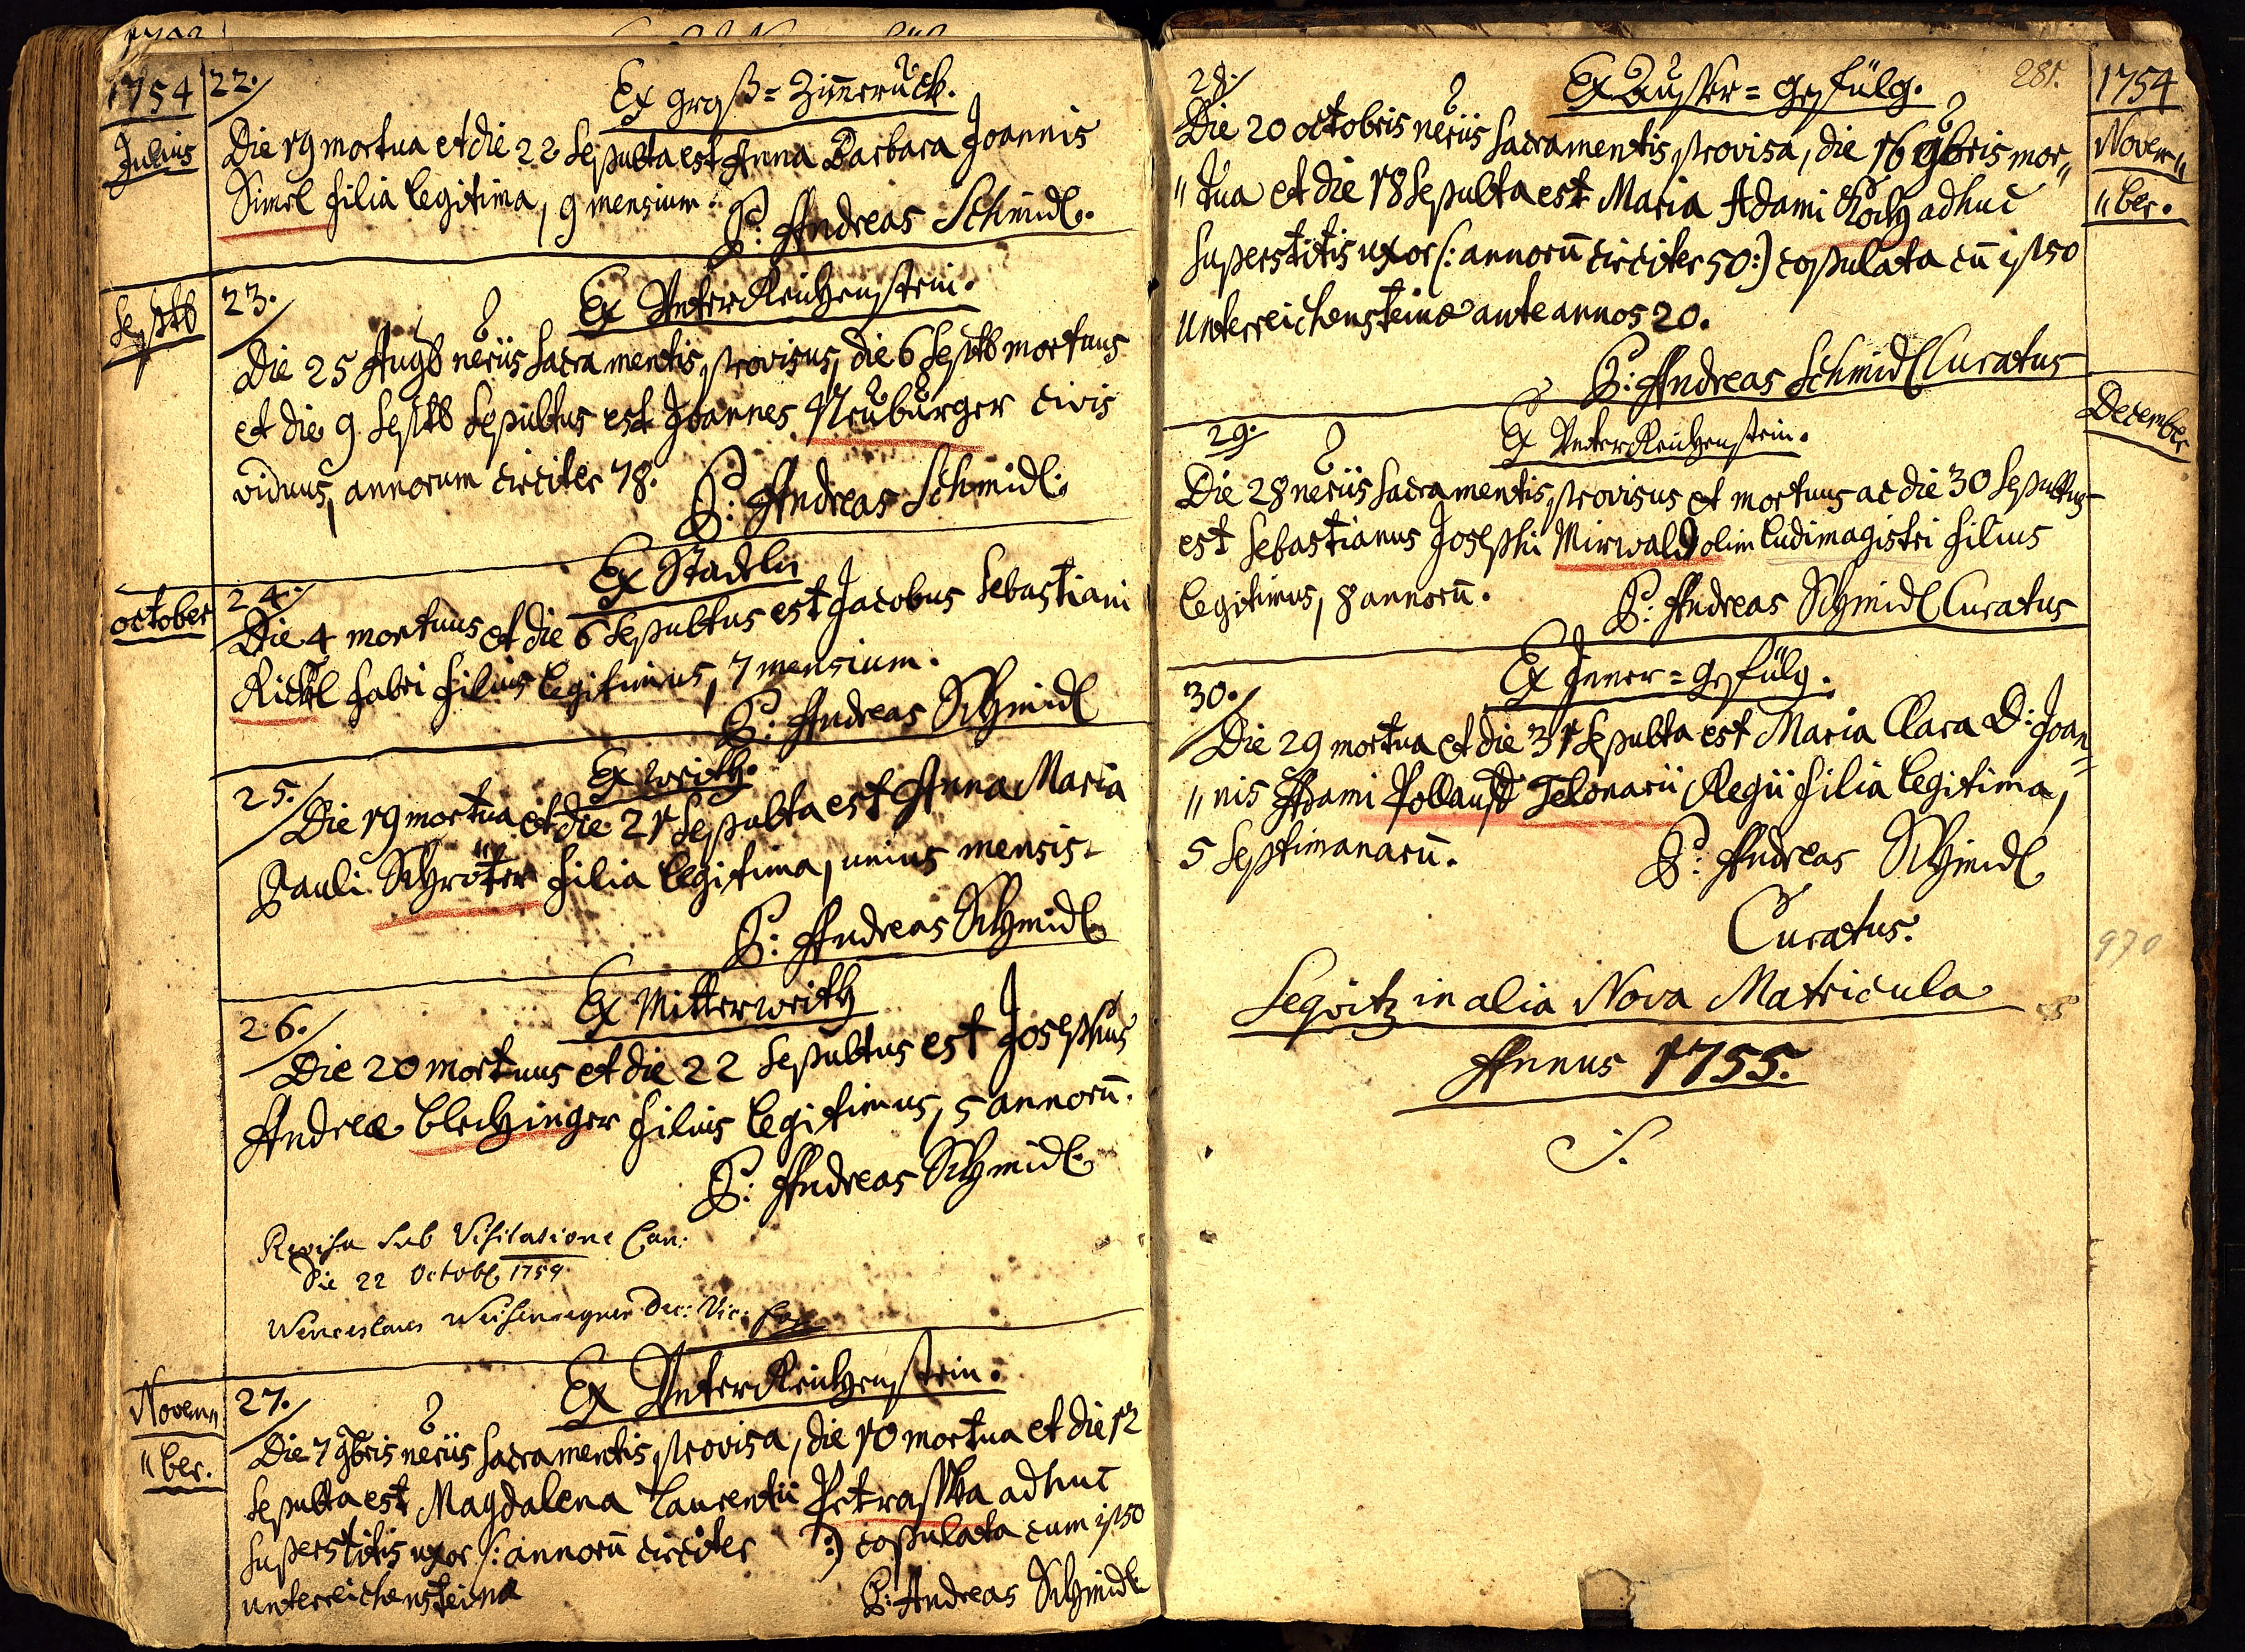 1754
22.
Ex Groß=Zimeruck.
Julius
Die 19 mortua et die 22 sepulta est Anna Barbara Joannis
Simel filia legitima, 9 mensium.
P: Andreas Schmidl.
Septb
23.
Ex Unter Reichenstein.
Die 25 Augb neriis sacramentis provisus, die 6 Septb mortuus
et die 9 Septb sepultus est Joannes Neuburger civis
viduus, annorum circiter 78.
P: Andreas Schmidl.
october
24.
Ex Stadeln
Die 4 mortuus et die 6 sepultus est Jacobus Sebastiani
Rickl fabri filius legitimus, 7 mensium.
P: Andreas Schmidl
25.
Ex Weith.
Die 19 mortua et die 21 sepulta est Anna Maria
Pauli Schröter filia legitima, unius mensis.
P: Andreas Schmidl
26.
Ex Mitterweith
Die 20 mortuus et die 22 sepultus est Josephus
Andreæ Blechinger filius legitimus, 5 annorū.
P: Andreas Schmidl.
Revisa sub Visitatione Can:
Die 22 Octobr 1754
Wenceslaus Dec: Vic:
Novem„
„ber.
27.
Ex Unter Reichenstein.
Die 7 9bris neriis sacramentis provisa, die 10 mortua et die 12
sepulta est Magdalena Laurentii Petraschka adhuc
superstitis uxor /: annorū circiter :) copulata cum ipso
unterreichensteinæ
P: Andreas Schmidl
281.
1754
28.
Ex Ausser=Gefülg.
Novem„
„ber.
Die 20 octobris neriis sacramentis provisa, die 16 9bris mor„
„tua et die 18 sepulta est Maria Adami Koch adhuc
superstitis uxor /: annorū circiter 50:) copulata cū ipso
unterreichensteinæ ante annos 20.
P: Andreas Schmidl Curatus
December
29.
Ex Unter Reichenstein.
Die 28 neriis sacramentis provisus et mortuus ac die 30 sepultus
est Sebastianus Josephi Mirwald olim ludimagistri filius
legitimus, 8 annorū.
P: Andreas Schmidl Curatus
30.
Ex Inner=Gefülg.
Die 29 mortua et die 31 sepulta est Maria Clara D: Joan=
„nis Adami Telonarii Regii filia legitima,
5 septimanarū.
P: Andreas Schmidl
Curatus.
970
in alia Nova Matricula
Annus 1755.